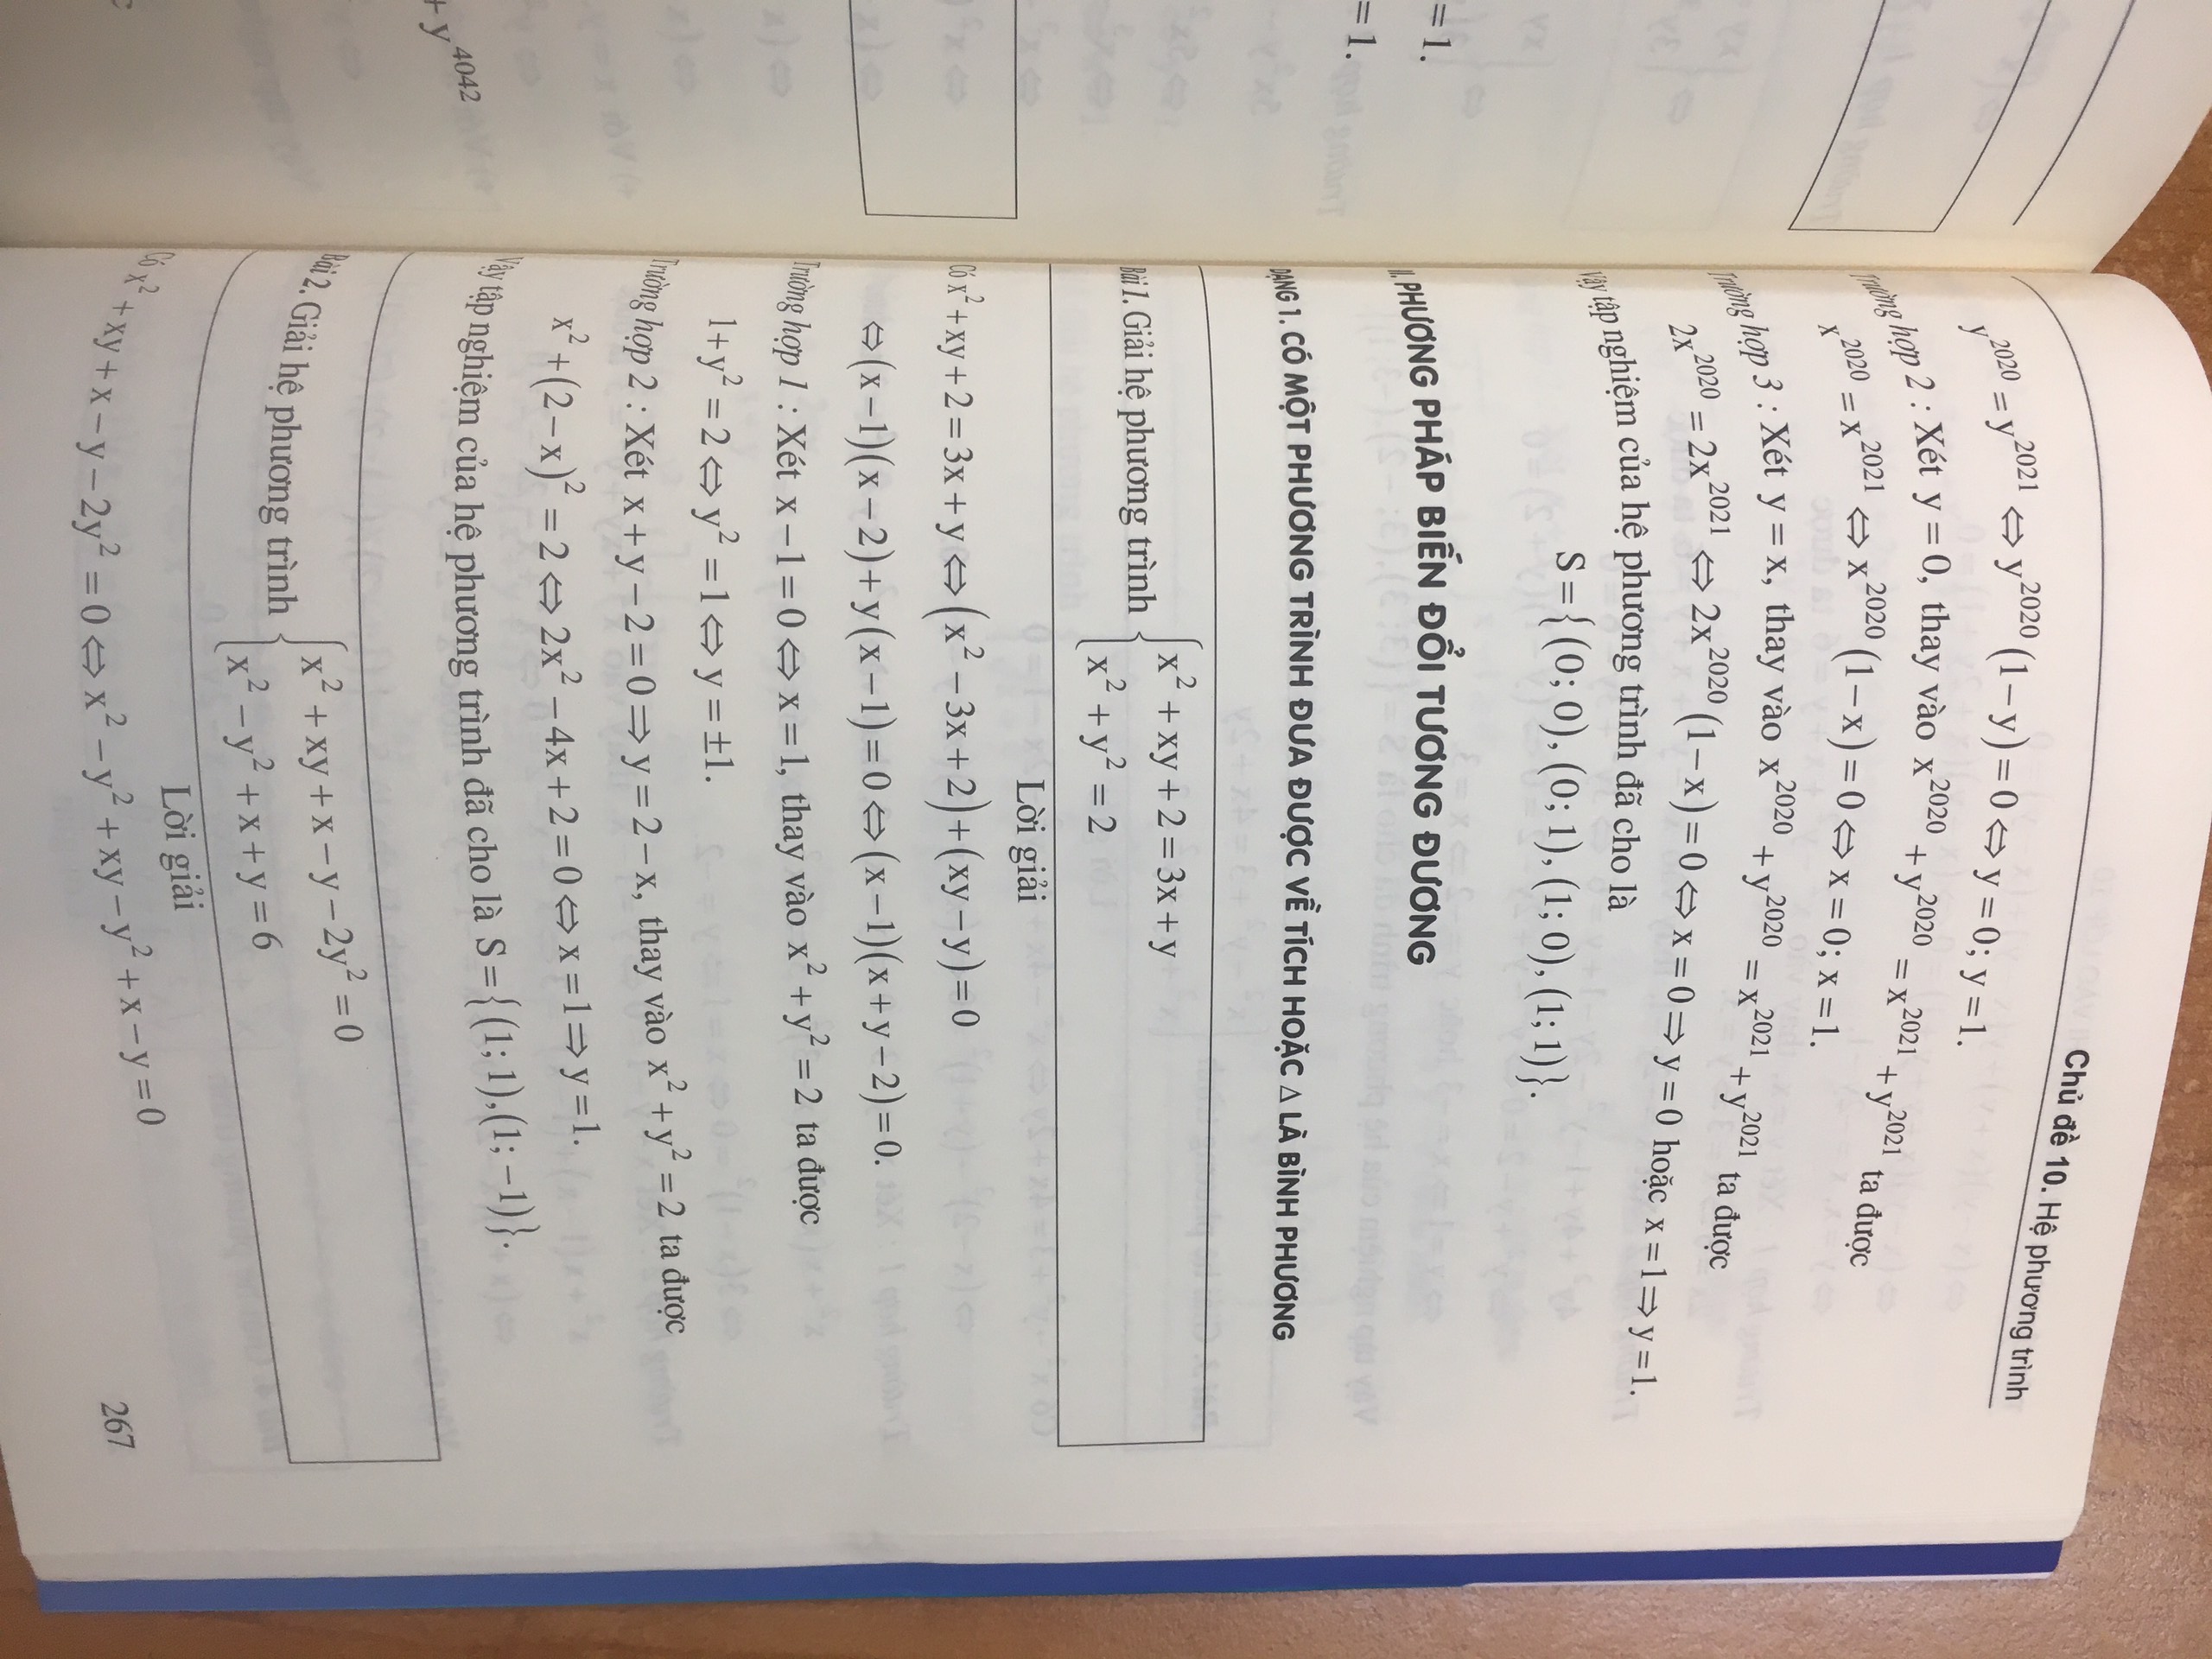 + y^4042
= 1.
= 1.
Chủ đề 10. Hệ phương trình
y^2020 = y^2021 ⇔ y^2020 (1 − y) = 0 ⇔ y = 0; y = 1.
Trường hợp 2 : Xét y = 0, thay vào x^2020 + y^2020 = x^2021 + y^2021 ta được
x^2020 = x^2021 ⇔ x^2020 (1 − x) = 0 ⇔ x = 0; x = 1.
Trường hợp 3 : Xét y = x, thay vào x^2020 + y^2020 = x^2021 + y^2021 ta được
2x^2020 = 2x^2021 ⇔ 2x^2020 (1 − x) = 0 ⇔ x = 0 ⇒ y = 0 hoặc x = 1 ⇒ y = 1.
Vậy tập nghiệm của hệ phương trình đã cho là
S = {(0; 0), (0; 1), (1; 0), (1; 1)}.
II. PHƯƠNG PHÁP BIẾN ĐỔI TƯƠNG ĐƯƠNG
DẠNG 1. CÓ MỘT PHƯƠNG TRÌNH ĐƯA ĐƯỢC VỀ TÍCH HOẶC Δ LÀ BÌNH PHƯƠNG
Bài 1. Giải hệ phương trình { x² + xy + 2 = 3x + y
x² + y² = 2
Lời giải
Có x² + xy + 2 = 3x + y ⇔ (x² − 3x + 2) + (xy − y) = 0
⇔ (x − 1)(x − 2) + y(x − 1) = 0 ⇔ (x − 1)(x + y − 2) = 0.
Trường hợp 1 : Xét x − 1 = 0 ⇔ x = 1, thay vào x² + y² = 2 ta được
1 + y² = 2 ⇔ y² = 1 ⇔ y = ±1.
Trường hợp 2 : Xét x + y − 2 = 0 ⇒ y = 2 − x, thay vào x² + y² = 2 ta được
x² + (2 − x)² = 2 ⇔ 2x² − 4x + 2 = 0 ⇔ x = 1 ⇒ y = 1.
Vậy tập nghiệm của hệ phương trình đã cho là S = {(1; 1), (1; −1)}.
Bài 2. Giải hệ phương trình { x² + xy + x − y − 2y² = 0
x² − y² + x + y = 6
Lời giải
Có x² + xy + x − y − 2y² = 0 ⇔ x² − y² + xy − y² + x − y = 0
267